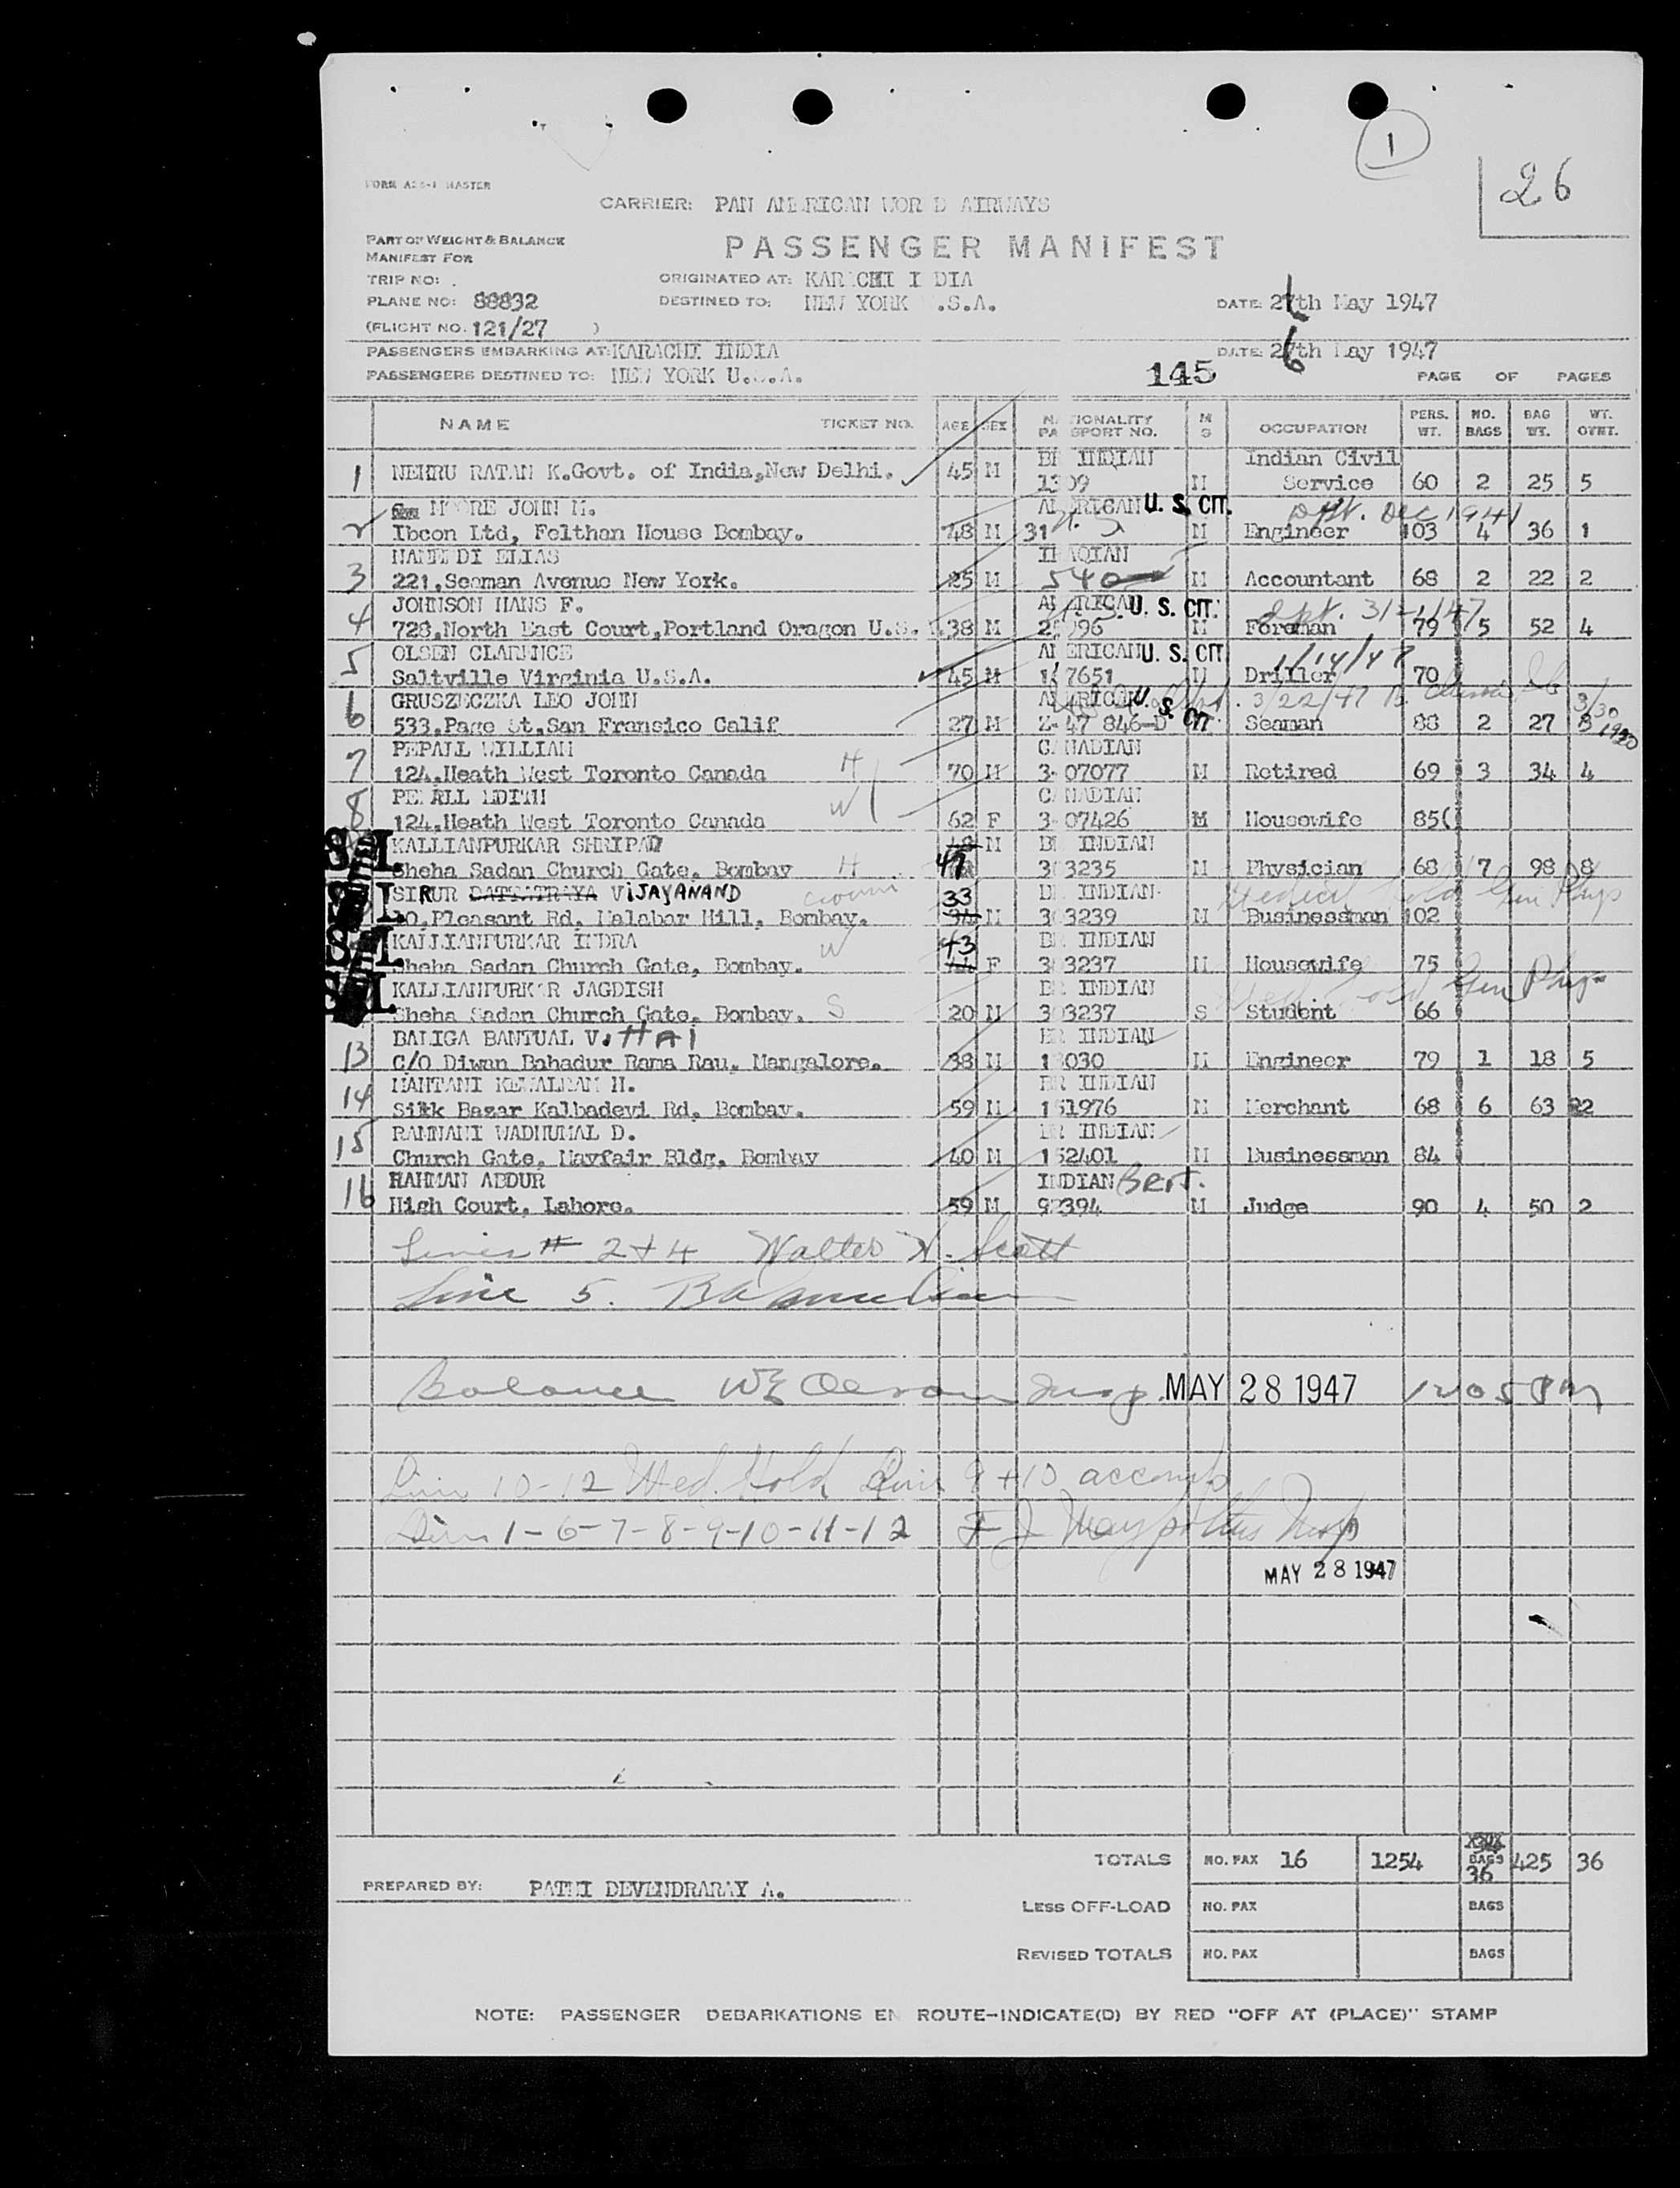 1
26
FORM ACS-1 MASTER
CARRIER: PAN AMERICAN WOR D AIRWAYS
PART OF WEIGHT & BALANCE
MANIFEST FOR
PASSENGER MANIFEST
TRIP NO:
ORIGINATED AT: KAR CHI I DIA
PLANE NO: 88832
DESTINED TO: NEW YORK .S.A.
DATE: 26th May 1947
(FLIGHT NO. 121/27 )
PASSENGERS EMBARKING AT: KARACHI INDIA
DATE: 26th May 1947
PASSENGERS DESTINED TO: NEW YORK U.S.A.
145
PAGE OF PAGES
NAME TICKET NO. AGE SEX NATIONALITY PASSPORT NO. M S OCCUPATION PERS. WT. NO. BAGS BAG WT. WT. OVRT.
1 NEHRU RATAN K.Govt. of India,New Delhi. 45 M BR INDIAN 1309 M Indian Civil Service 60 2 25 5
2 MOORE JOHN M. AMERICAN U. S. CIT. Dpt. Dec 1941
Ibcon Ltd, Felthan House Bombay. 48 M 31 M Engineer 103 4 36 1
3 ELIAS IRAQIAN
221,Seaman Avenue New York. 25 M 540 M Accountant 68 2 22 2
4 JOHNSON HANS F. AMERICAN U. S. CIT. Dpt.
728,North East Court,Portland Oragon U.S. 38 M M Foreman 79 5 52 4
5 OLSEN CLARENCE AMERICAN U. S. CIT 1/14/47
Saltville Virginia U.S.A. 45 M 1 7651 M Driller 70
6 GRUSZECZKA LEO JOHN AMERICAN U. S. CIT. 3/22/47 3/30 1920
533,Page St,San Fransico Calif 27 M Z-47 846-D Seaman 88 2 27 3
7 PEPALL WILLIAM H CANADIAN
124,Heath West Toronto Canada 70 M 3-07077 M Retired 69 3 34 4
8 PEPALL EDITH W CANADIAN
124,Heath West Toronto Canada 62 F 3-07426 M Housewife 85(
KALLIANPURKAR SHRIPAD 48 M BR INDIAN
Sheha Sadan Church Gate, Bombay H 47 303235 M Physician 68 7 98 8
SIRUR DATTATRAYA VIJAYANAND 33 BR INDIAN Medical Hold Gen Phys
10,Pleasant Rd, Malabar Hill, Bombay. 34 M 303239 M Businessman 102
KALLIANPURKAR INDRA W 43 BR INDIAN
Sheha Sadan Church Gate, Bombay. 44 F 303237 M Housewife 75
KALLIANPURKAR JAGDISH BR INDIAN Med Hold Gen Phys
Sheha Sadan Church Gate, Bombay. S 20 M 303237 S Student 66
13 BALIGA BANTUAL V. HAI BR INDIAN
C/O Diwan Bahadur Rama Rau, Mangalore. 38 M 1 030 M Engineer 79 1 18 5
14 MAHTANI KEWALRAM H. BR INDIAN
Silk Bazar Kalbadevi Rd, Bombay. 59 M 151976 M Merchant 68 6 63 22
15 RAMNANI WADHUMAL D. BR INDIAN
Church Gate, Mayfair Bldg, Bombay 40 M 152401 M Businessman 84
16 RAHMAN ABDUR INDIAN BRIT.
High Court, Lahore. 59 M 92394 M Judge 90 4 50 2
Lines # 2 + 4 Walter W. Scott
Line 5.
Balance Insp. MAY 28 1947 1205 PM
Line 10-12 Med. Hold Line 9 + 10 accomp
Line 1-6-7-8-9-10-11-12 F J Insp
MAY 28 1947
TOTALS NO. PAX 16 1254 BAGS 36 425 36
PREPARED BY: PATHI DEVENDRARAY A.
LESS OFF-LOAD NO. PAX BAGS
REVISED TOTALS NO. PAX BAGS
NOTE: PASSENGER DEBARKATIONS EN ROUTE-INDICATE(D) BY RED "OFF AT (PLACE)" STAMP